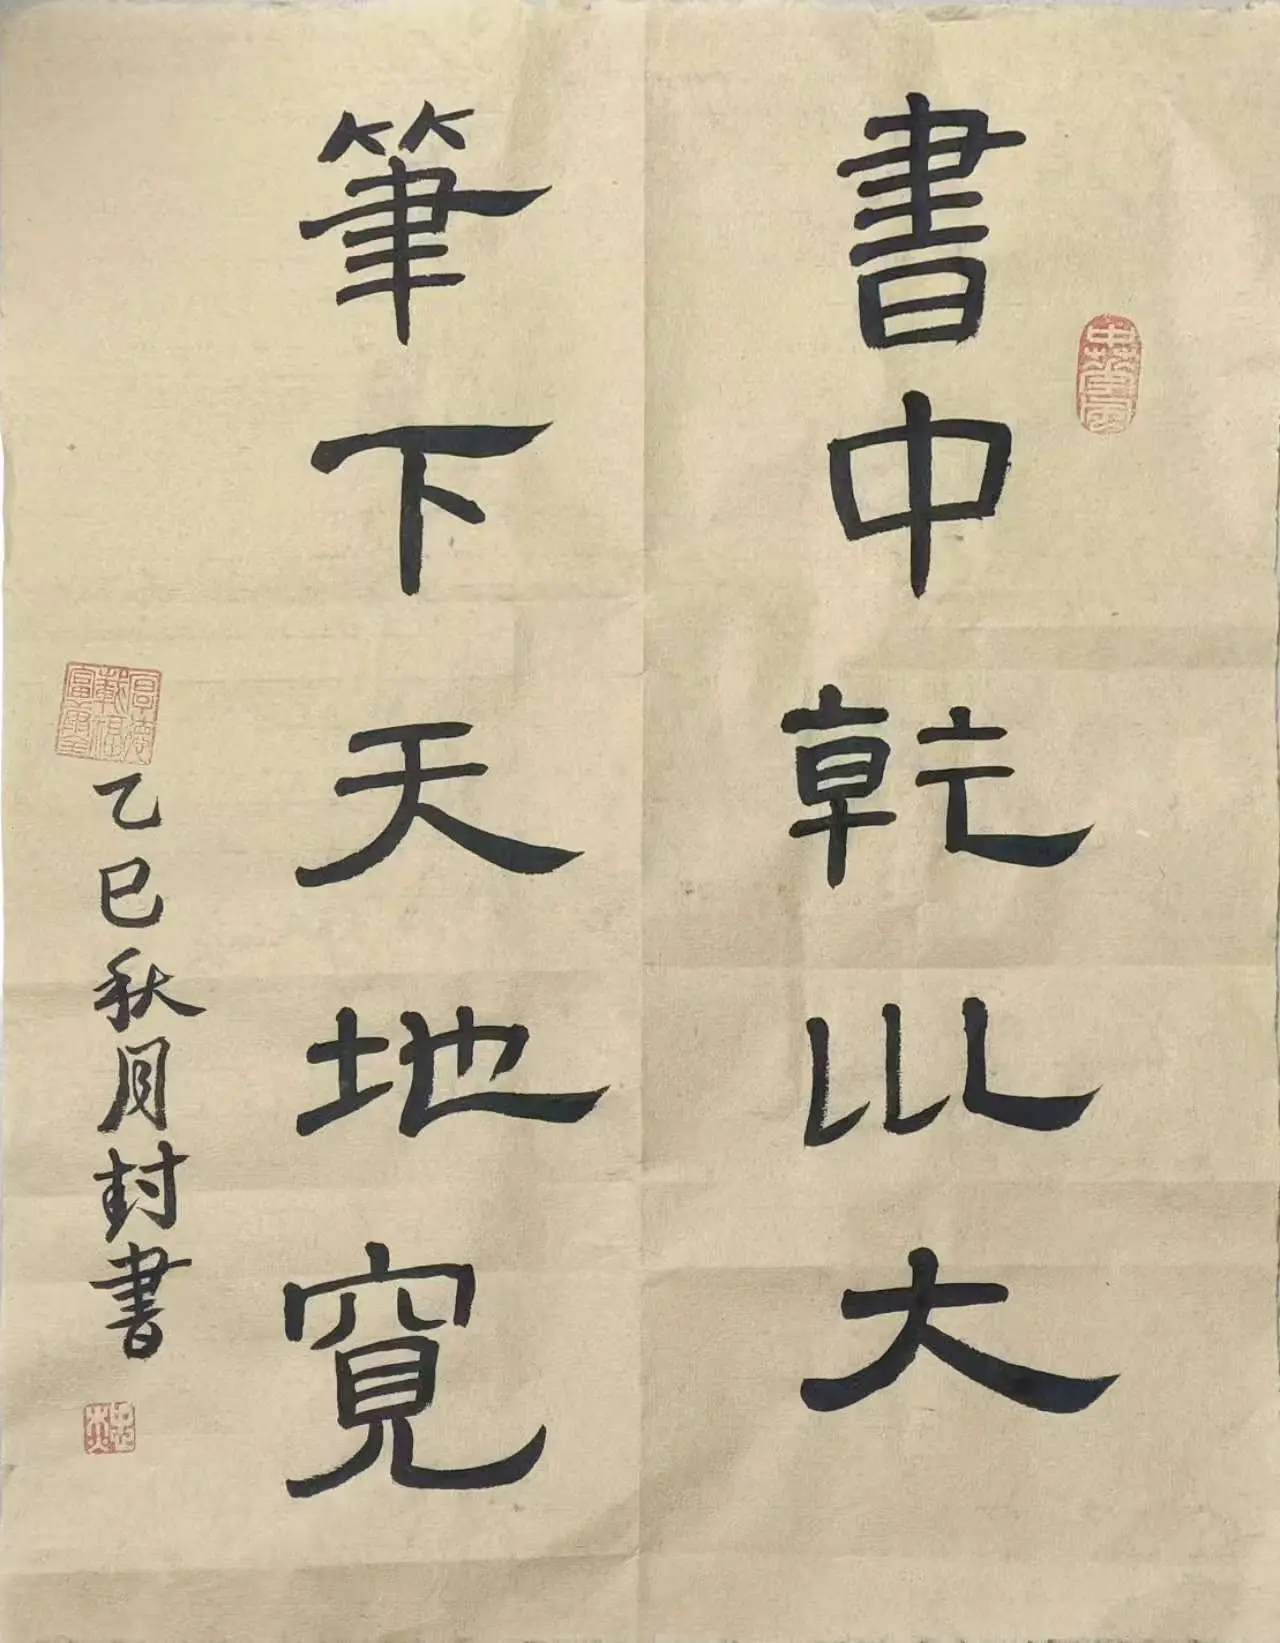 書中乾巛大
筆下天地寬
乙巳秋月封書